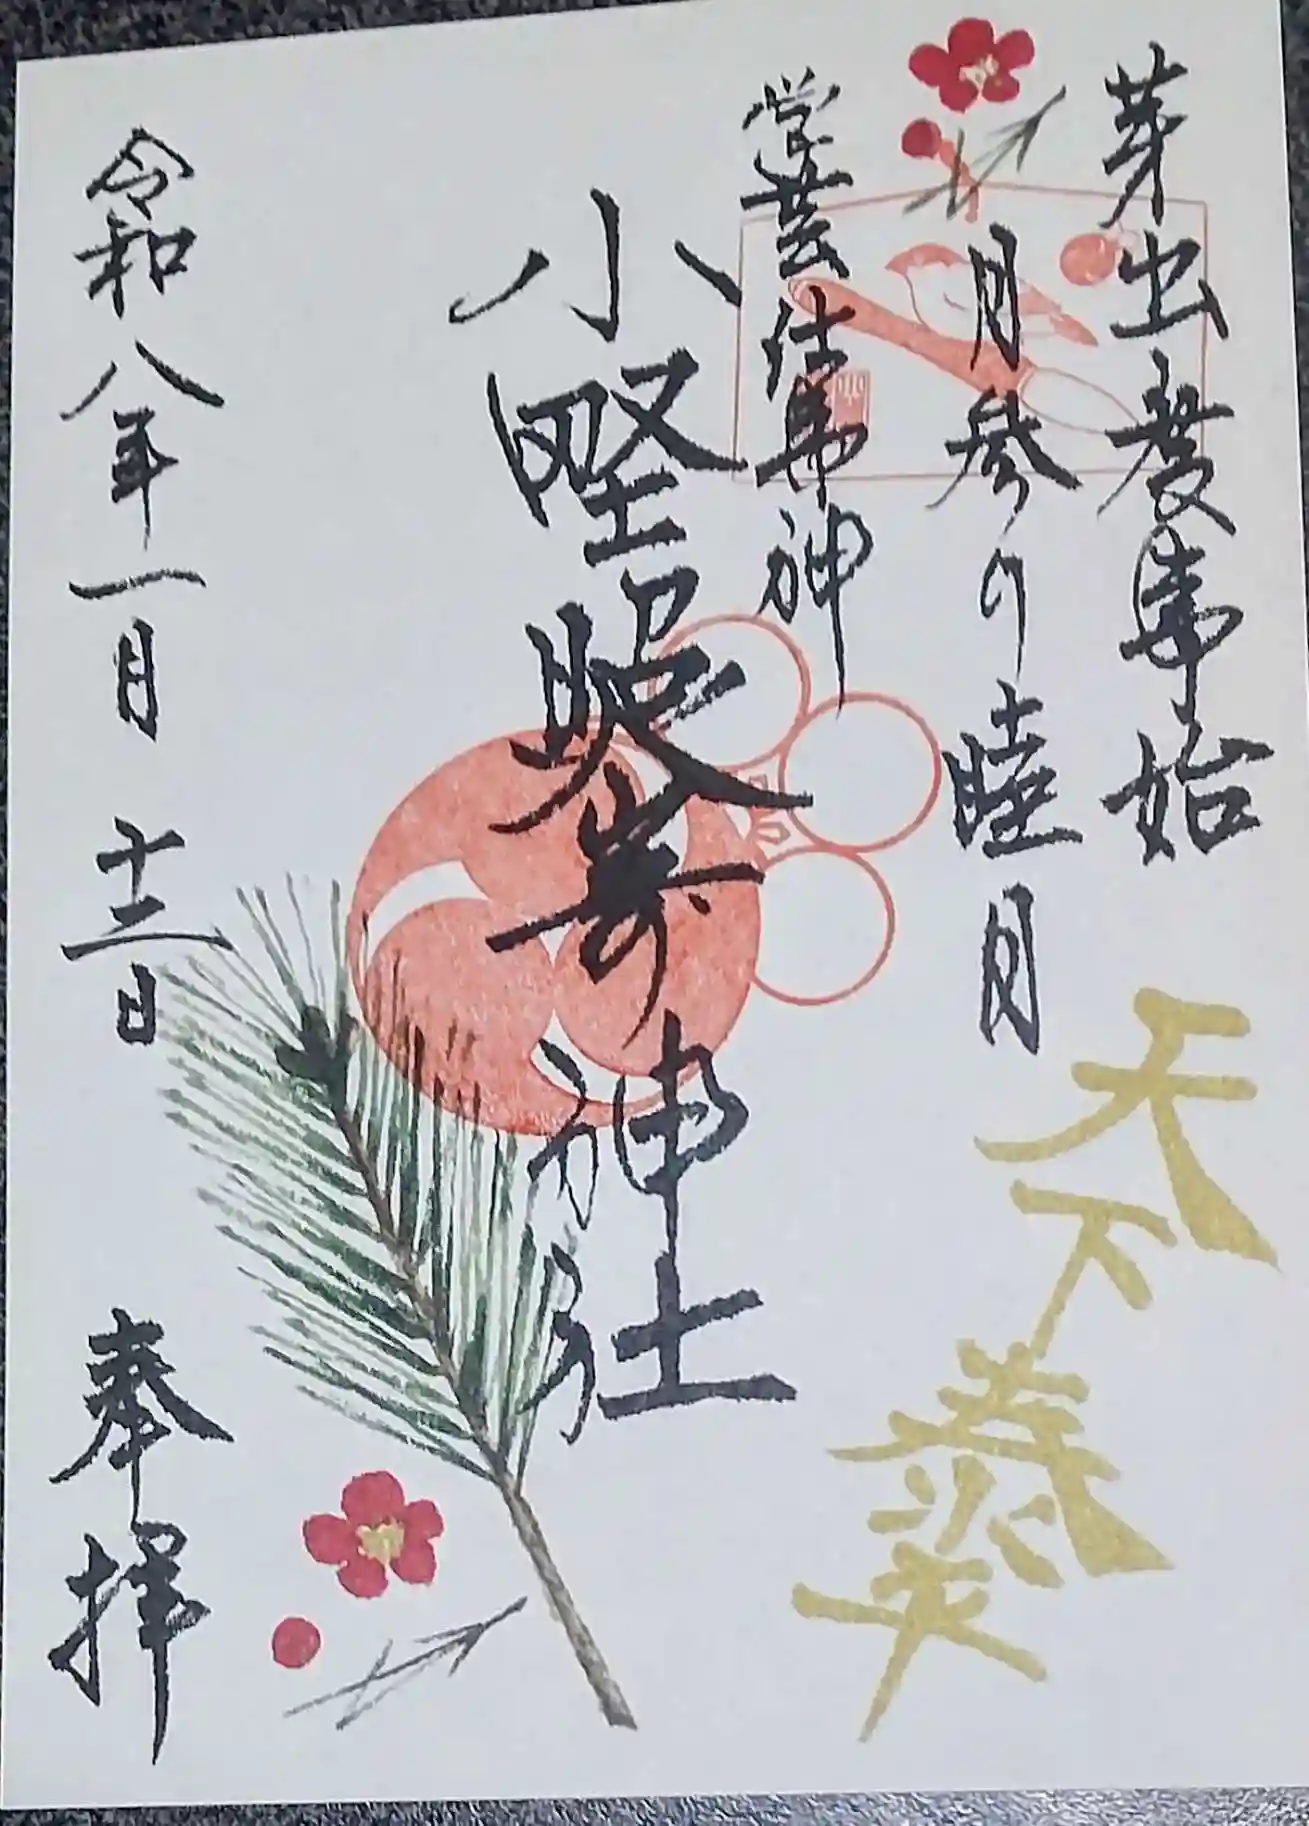 芽出度事始
月参り睦月
学芸仕事神
天下泰平
小野照崎神社
令和八年一月十二日
奉拝